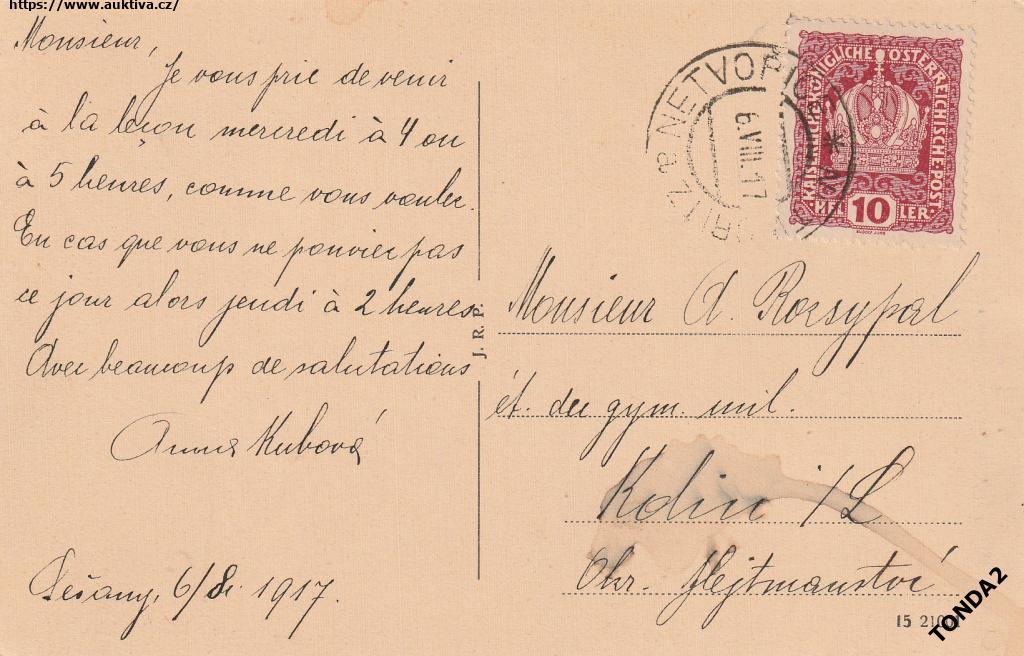 https://www.auktiva.cz/
Monsieur,
Je vous prie de venir
à la leçon mercredi à 4 ou
à 5 heures, comme vous voulez.
En cas que vous ne pouviez pas
ce jour alors jeudi à 2 heures.
Avec beaucoup de salutations
Anna Kubová
6/8. 1917.
J. R. P.
NETVOŘIC
6.VIII.17
KAISERLICHE KÖNIGLICHE ÖSTERREICHISCHE POST
HEL 10 LER
Monsieur A. Rozsypal
ét. du gym. mil.
Kolín /L
Okr. Hejtmanství
15 210
TONDA2